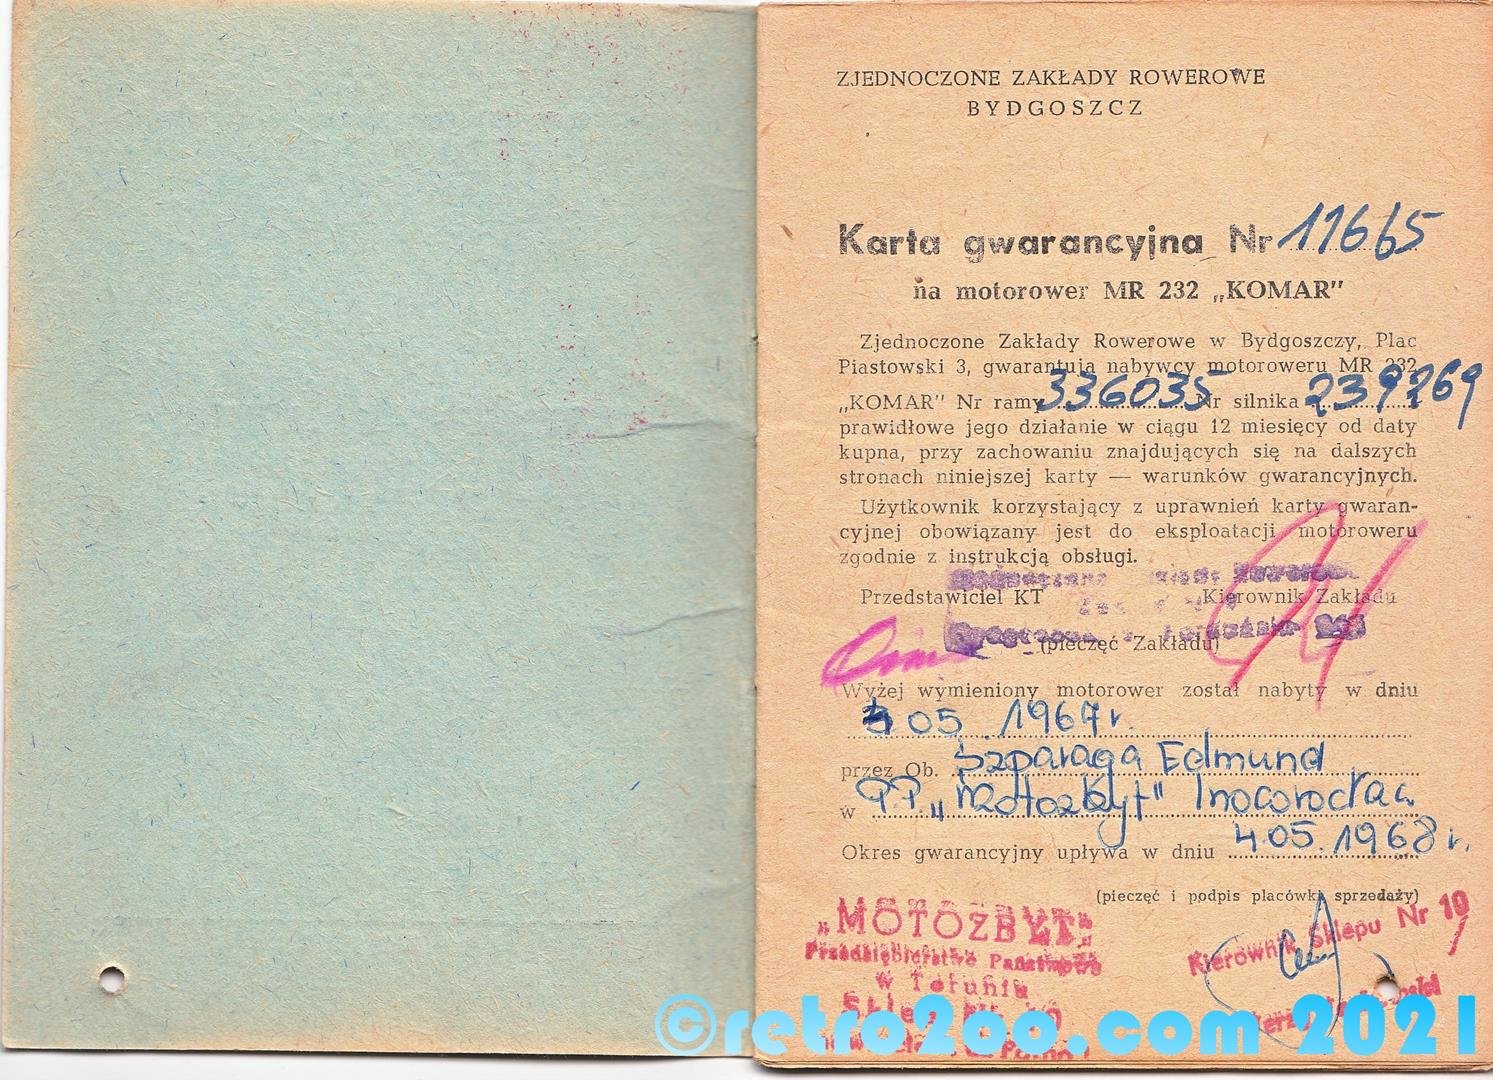 ZJEDNOCZONE ZAKŁADY ROWEROWE
BYDGOSZCZ
Karta gwarancyjna Nr 11665
na motorower MR 232 „KOMAR"
Zjednoczone Zakłady Rowerowe w Bydgoszczy, Plac
Piastowski 3, gwarantują nabywcy motoroweru MR 232
„KOMAR" Nr ramy 336035 Nr silnika 239269
prawidłowe jego działanie w ciągu 12 miesięcy od daty
kupna, przy zachowaniu znajdujących się na dalszych
stronach niniejszej karty — warunków gwarancyjnych.
Użytkownik korzystający z uprawnień karty gwaran-
cyjnej obowiązany jest do eksploatacji motoroweru
zgodnie z instrukcją obsługi.
Przedstawiciel KT Kierownik Zakładu
(pieczęć Zakładu)
Wyżej wymieniony motorower został nabyty w dniu
05 1967 r.
przez Ob. Szparaga Edmund
w PP „Motozbyt" Inocorocław
Okres gwarancyjny upływa w dniu 4 05. 1968 r.
(pieczęć i podpis placówki sprzedaży)
„MOTOZBYT"
Przedsiębiorstwo Państwowe
w Toruniu
Kierownik Sklepu Nr 19
©retro2oo.com 2021